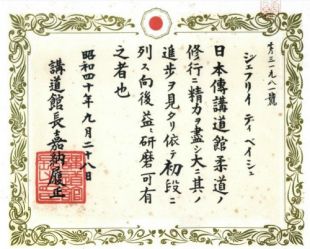 才三一九八一號
ジェフリイ ティ ペイシェ
日本傳講道館柔道ノ
修行ニ精力ヲ盡シ大ニ其ノ
進歩ヲ見タリ依テ初段ニ
列ス向後益々研磨可有
之者也
昭和四十年九月二十八日
講道館長嘉納履正